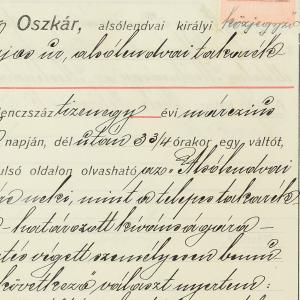 Oszkár, alsólendvai királyi közjegyző
úr, alsólendvai takarék
lenczszáz tizenegy évi márczius
napján, dél után 3 3/4 órakor egy váltót,
ulsó oldalon olvasható az: Alsólendvai
neki, mint a telepes takarék
- határozott kívánságára -
végett személyesen
következő választ nyertem: